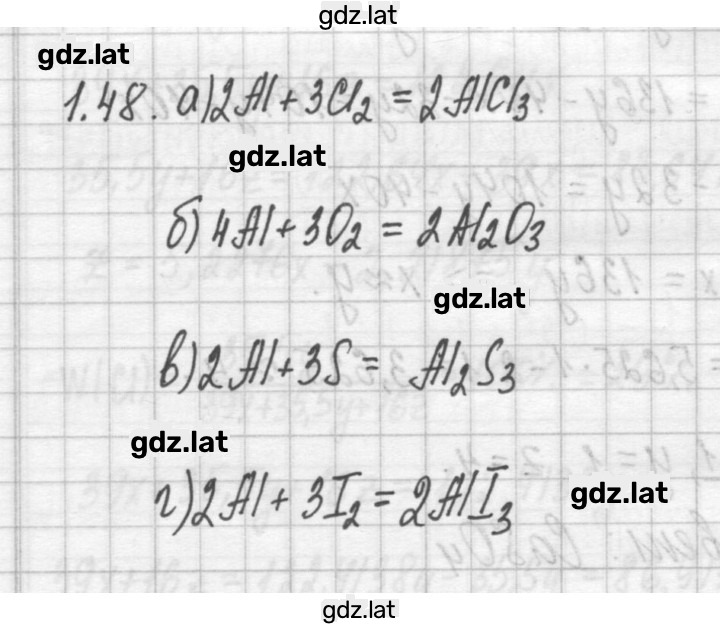 gdz.lat
gdz.lat
1.48. а) 2Al + 3Cl₂ = 2AlCl₃
gdz.lat
б) 4Al + 3O₂ = 2Al₂O₃
gdz.lat
в) 2Al + 3S = Al₂S₃
gdz.lat
г) 2Al + 3I₂ = 2AlI₃
gdz.lat
gdz.lat